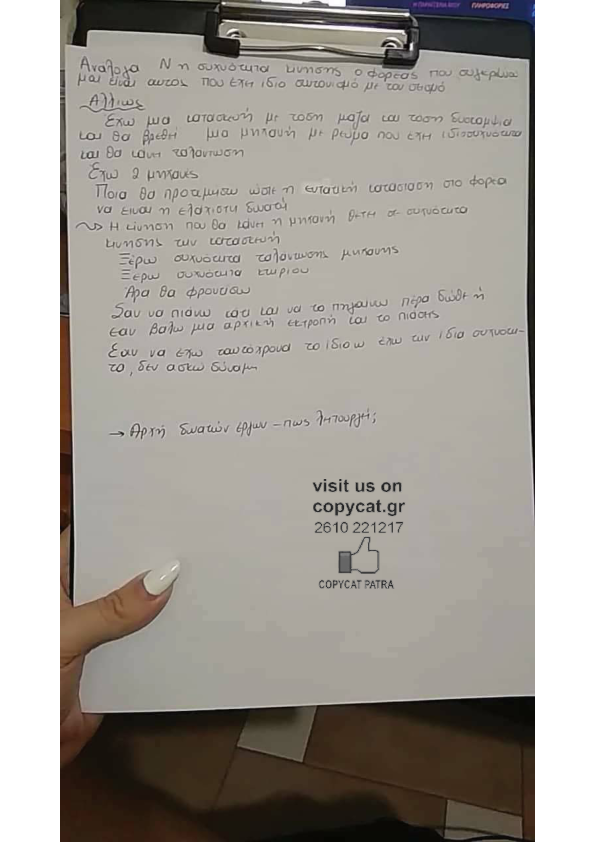 Η ΠΑΡΑΓΓΕΛΙΑ ΜΟΥ ΠΛΗΡΟΦΟΡΙΕΣ
Ανάλογα Ν η συχνότητα κίνησης ο φορέας που
και είναι αυτός που έχει ίδιο συντονισμό με τον σεισμό
Αλλιώς
Έχω μια κατασκευή με τόση μάζα και τόση δυσκαμψία
και θα βρεθεί μια μηχανή με ρεύμα που έχει ιδιοσυχνότητα
και θα κάνει ταλάντωση
Έχω 2 μηχανές
Ποια θα προτιμήσω ώστε η εντατική κατάσταση στο φορέα
να είναι η ελάχιστη δυνατή
Η κίνηση που θα κάνει η μηχανή θέτει σε συχνότητα
κίνησης την κατασκευή
Ξέρω συχνότητα ταλάντωσης μηχανής
Ξέρω συχνότητα κτιρίου
Άρα θα φροντίσω
Σαν να πιάνω κάτι και να το πηγαίνω πέρα δώθε ή
εαν βάλω μια αρχική εκτροπή και το πιάσεις
Εαν να έχω ταυτόχρονα το ίδιο ω έχω την ίδια συχνότη-
τα, δεν ασκώ δύναμη
→ Αρχή δυνατών έργων - πως λητουργεί;
visit us on
copycat.gr
2610 221217
COPYCAT PATRA